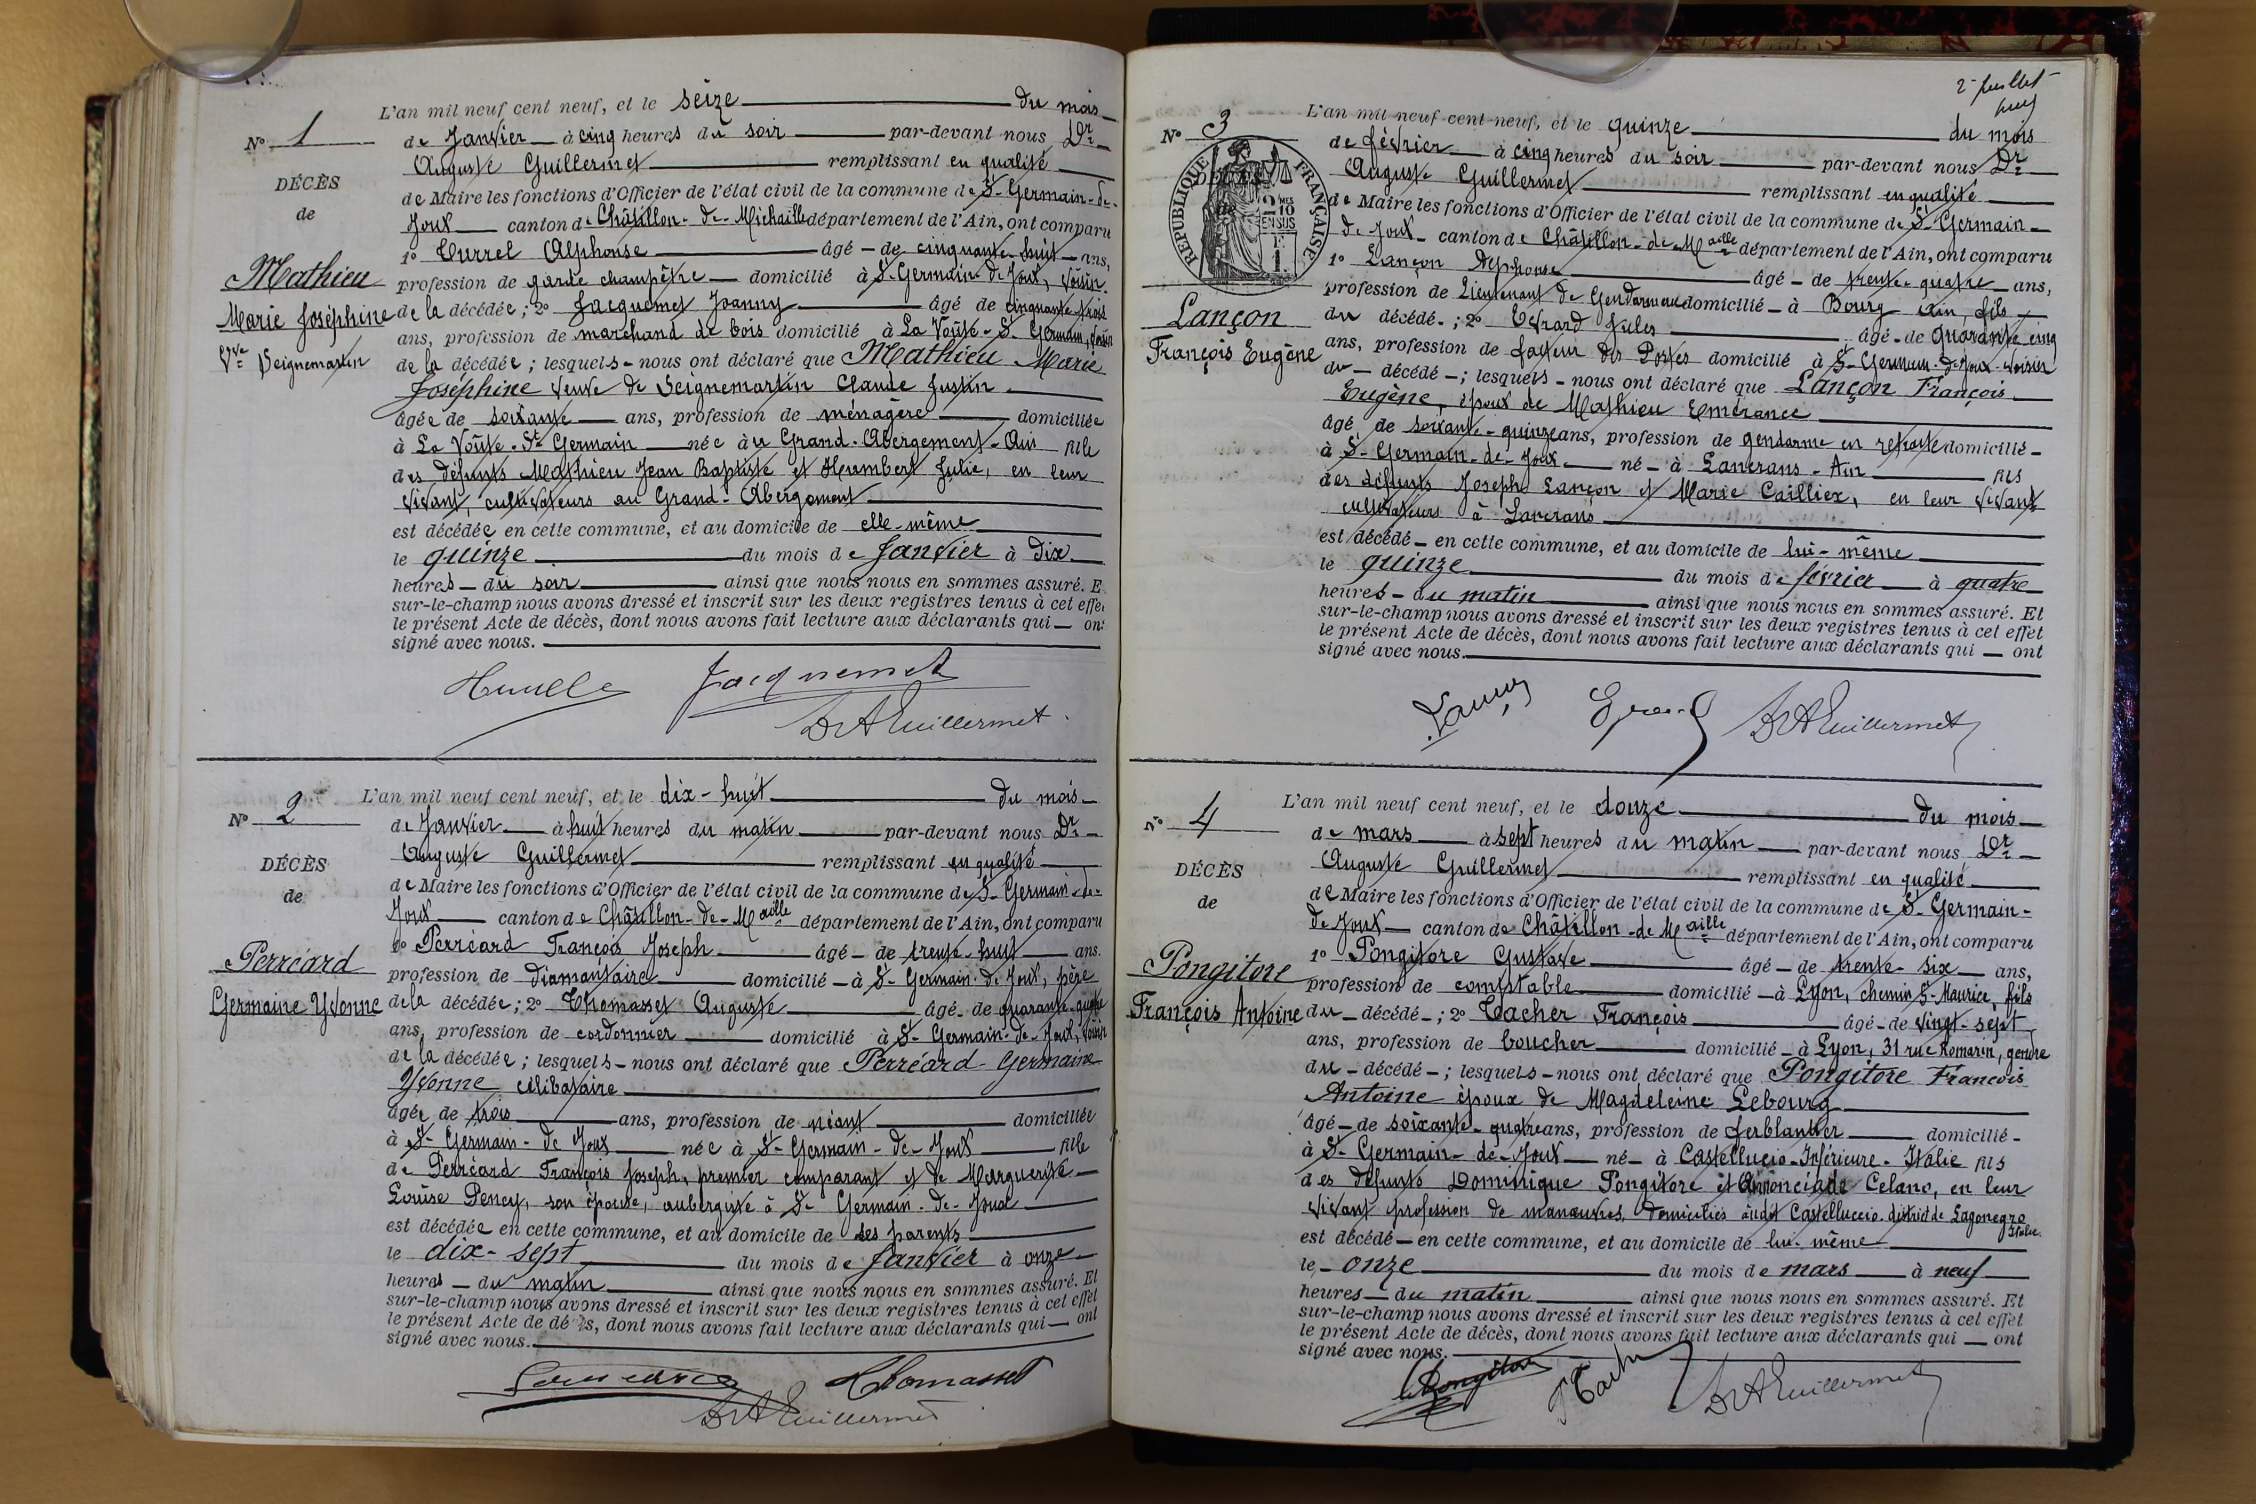 L'an mil neuf cent neuf, et le seize du mois
N° 1 de Janvier à cinq heures du soir par-devant nous Dr
Auguste Guillermet remplissant en qualité
DÉCÈS
de Maire les fonctions d'Officier de l'état civil de la commune de St Germain-de-
de
Joux canton de Châtillon-de-Michaille département de l'Ain, ont comparu
1° Turrel Alphonse âgé de cinquante-huit ans,
Mathieu
profession de garde champêtre domicilié à St Germain-de-Joux, voisin
Marie Joséphine
de la décédée; 2° Jacquemet Joanny âgé de cinquante-trois
Vve Seignemartin
ans, profession de marchand de bois domicilié à La Voûte-St Germain, voisin
de la décédée; lesquels nous ont déclaré que Mathieu Marie
Joséphine veuve de Seignemartin Claude Justin
âgée de soixante ans, profession de ménagère domiciliée
à La Voûte-St Germain née au Grand-Abergement-Ain fille
des défunts Mathieu Jean Baptiste et Humbert Julie, en leur
vivant, cultivateurs au Grand-Abergement
est décédée en cette commune, et au domicile de elle-même
le quinze du mois de Janvier à dix
heures du soir ainsi que nous nous en sommes assuré. E
sur-le-champ nous avons dressé et inscrit sur les deux registres tenus à cet effe
le présent Acte de décès, dont nous avons fait lecture aux déclarants qui on
signé avec nous.
Jacquemet
Dr A Guillermet
L'an mil neuf cent neuf, et le dix-huit du mois
N° 2 de Janvier à huit heures du matin par-devant nous Dr
Auguste Guillermet remplissant en qualité
DÉCÈS
de Maire les fonctions d'Officier de l'état civil de la commune de St Germain-de-
de
Joux canton de Châtillon-de-Maille département de l'Ain, ont comparu
1° Perréard François Joseph âgé de trente-huit ans.
Perréard
profession de diamantaire domicilié à St Germain-de-Joux, père
Germaine Yvonne
de la décédée; 2° Thomasset Auguste âgé de quarante-quatre
ans, profession de cordonnier domicilié à St Germain-de-Joux, voisin
de la décédée; lesquels nous ont déclaré que Perréard Germaine
Yvonne célibataire
âgée de trois ans, profession de néant domiciliée
à St Germain-de-Joux née à St Germain-de-Joux fille
de Perréard François Joseph, premier comparant et de Marguerite
Louise Pency, son épouse, aubergiste à St Germain-de-Joux
est décédée en cette commune, et au domicile de ses parents
le dix-sept du mois de Janvier à onze
heures du matin ainsi que nous nous en sommes assuré. Et
sur-le-champ nous avons dressé et inscrit sur les deux registres tenus à cet effet
le présent Acte de décès, dont nous avons fait lecture aux déclarants qui ont
signé avec nous.
Thomasset
Dr A Guillermet
2 Juillet
L'an mil neuf cent neuf, et le quinze du mois
N° 3 de février à cinq heures du soir par-devant nous Dr
Auguste Guillermet remplissant en qualité
RÉPUBLIQUE FRANÇAISE
2 MES 10 EN SUS
1F. 1
de Maire les fonctions d'Officier de l'état civil de la commune de St Germain-
de Joux canton de Châtillon-de-Maille département de l'Ain, ont comparu
1° Lançon Alphonse âgé de trente-quatre ans,
profession de Lieutenant de Gendarmerie domicilié à Bourg Ain, fils
Lançon
du décédé; 2° Evrard Jules âgé de quarante cinq
François Eugène
ans, profession de facteur des Postes domicilié à St Germain-de-Joux voisin
du décédé; lesquels nous ont déclaré que Lançon François
Eugène, époux de Mathieu Emérance
âgé de soixante-quinze ans, profession de gendarme en retraite domicilié
à St Germain-de-Joux né à Lancrans-Ain fils
des défunts Joseph Lançon et Marie Cailliex, en leur vivant
cultivateurs à Lancrans
est décédé en cette commune, et au domicile de lui-même
le quinze du mois de février à quatre
heures du matin ainsi que nous nous en sommes assuré. Et
sur-le-champ nous avons dressé et inscrit sur les deux registres tenus à cet effet
le présent Acte de décès, dont nous avons fait lecture aux déclarants qui ont
signé avec nous.
Lançon Evrard Dr A Guillermet
L'an mil neuf cent neuf, et le douze du mois
N° 4 de mars à sept heures du matin par-devant nous Dr
Auguste Guillermet remplissant en qualité
DÉCÈS
de Maire les fonctions d'Officier de l'état civil de la commune de St Germain-
de
de Joux canton de Châtillon-de-Maille département de l'Ain, ont comparu
1° Pongitore Gustave âgé de trente-six ans,
Pongitore
profession de comptable domicilié à Lyon, chemin St Maurice, fils
François Antoine
du décédé; 2° Tacher François âgé de vingt-sept
ans, profession de boucher domicilié à Lyon, 31 rue Romarin, gendre
du décédé; lesquels nous ont déclaré que Pongitore François
Antoine époux de Magdeleine Lebourg
âgé de soixante-quatre ans, profession de ferblantier domicilié
à St Germain-de-Joux né à Castellucio-Inférieure-Italie fils
des défunts Dominique Pongitore et Annonciade Celano, en leur
vivant profession de manœuvres, domiciliés audit Castelluccio district de Lagonegro
Italie.
est décédé en cette commune, et au domicile de lui-même
le onze du mois de mars à neuf
heures du matin ainsi que nous nous en sommes assuré. Et
sur-le-champ nous avons dressé et inscrit sur les deux registres tenus à cet effet
le présent Acte de décès, dont nous avons fait lecture aux déclarants qui ont
signé avec nous.
Pongitore F Tacher Dr A Guillermet